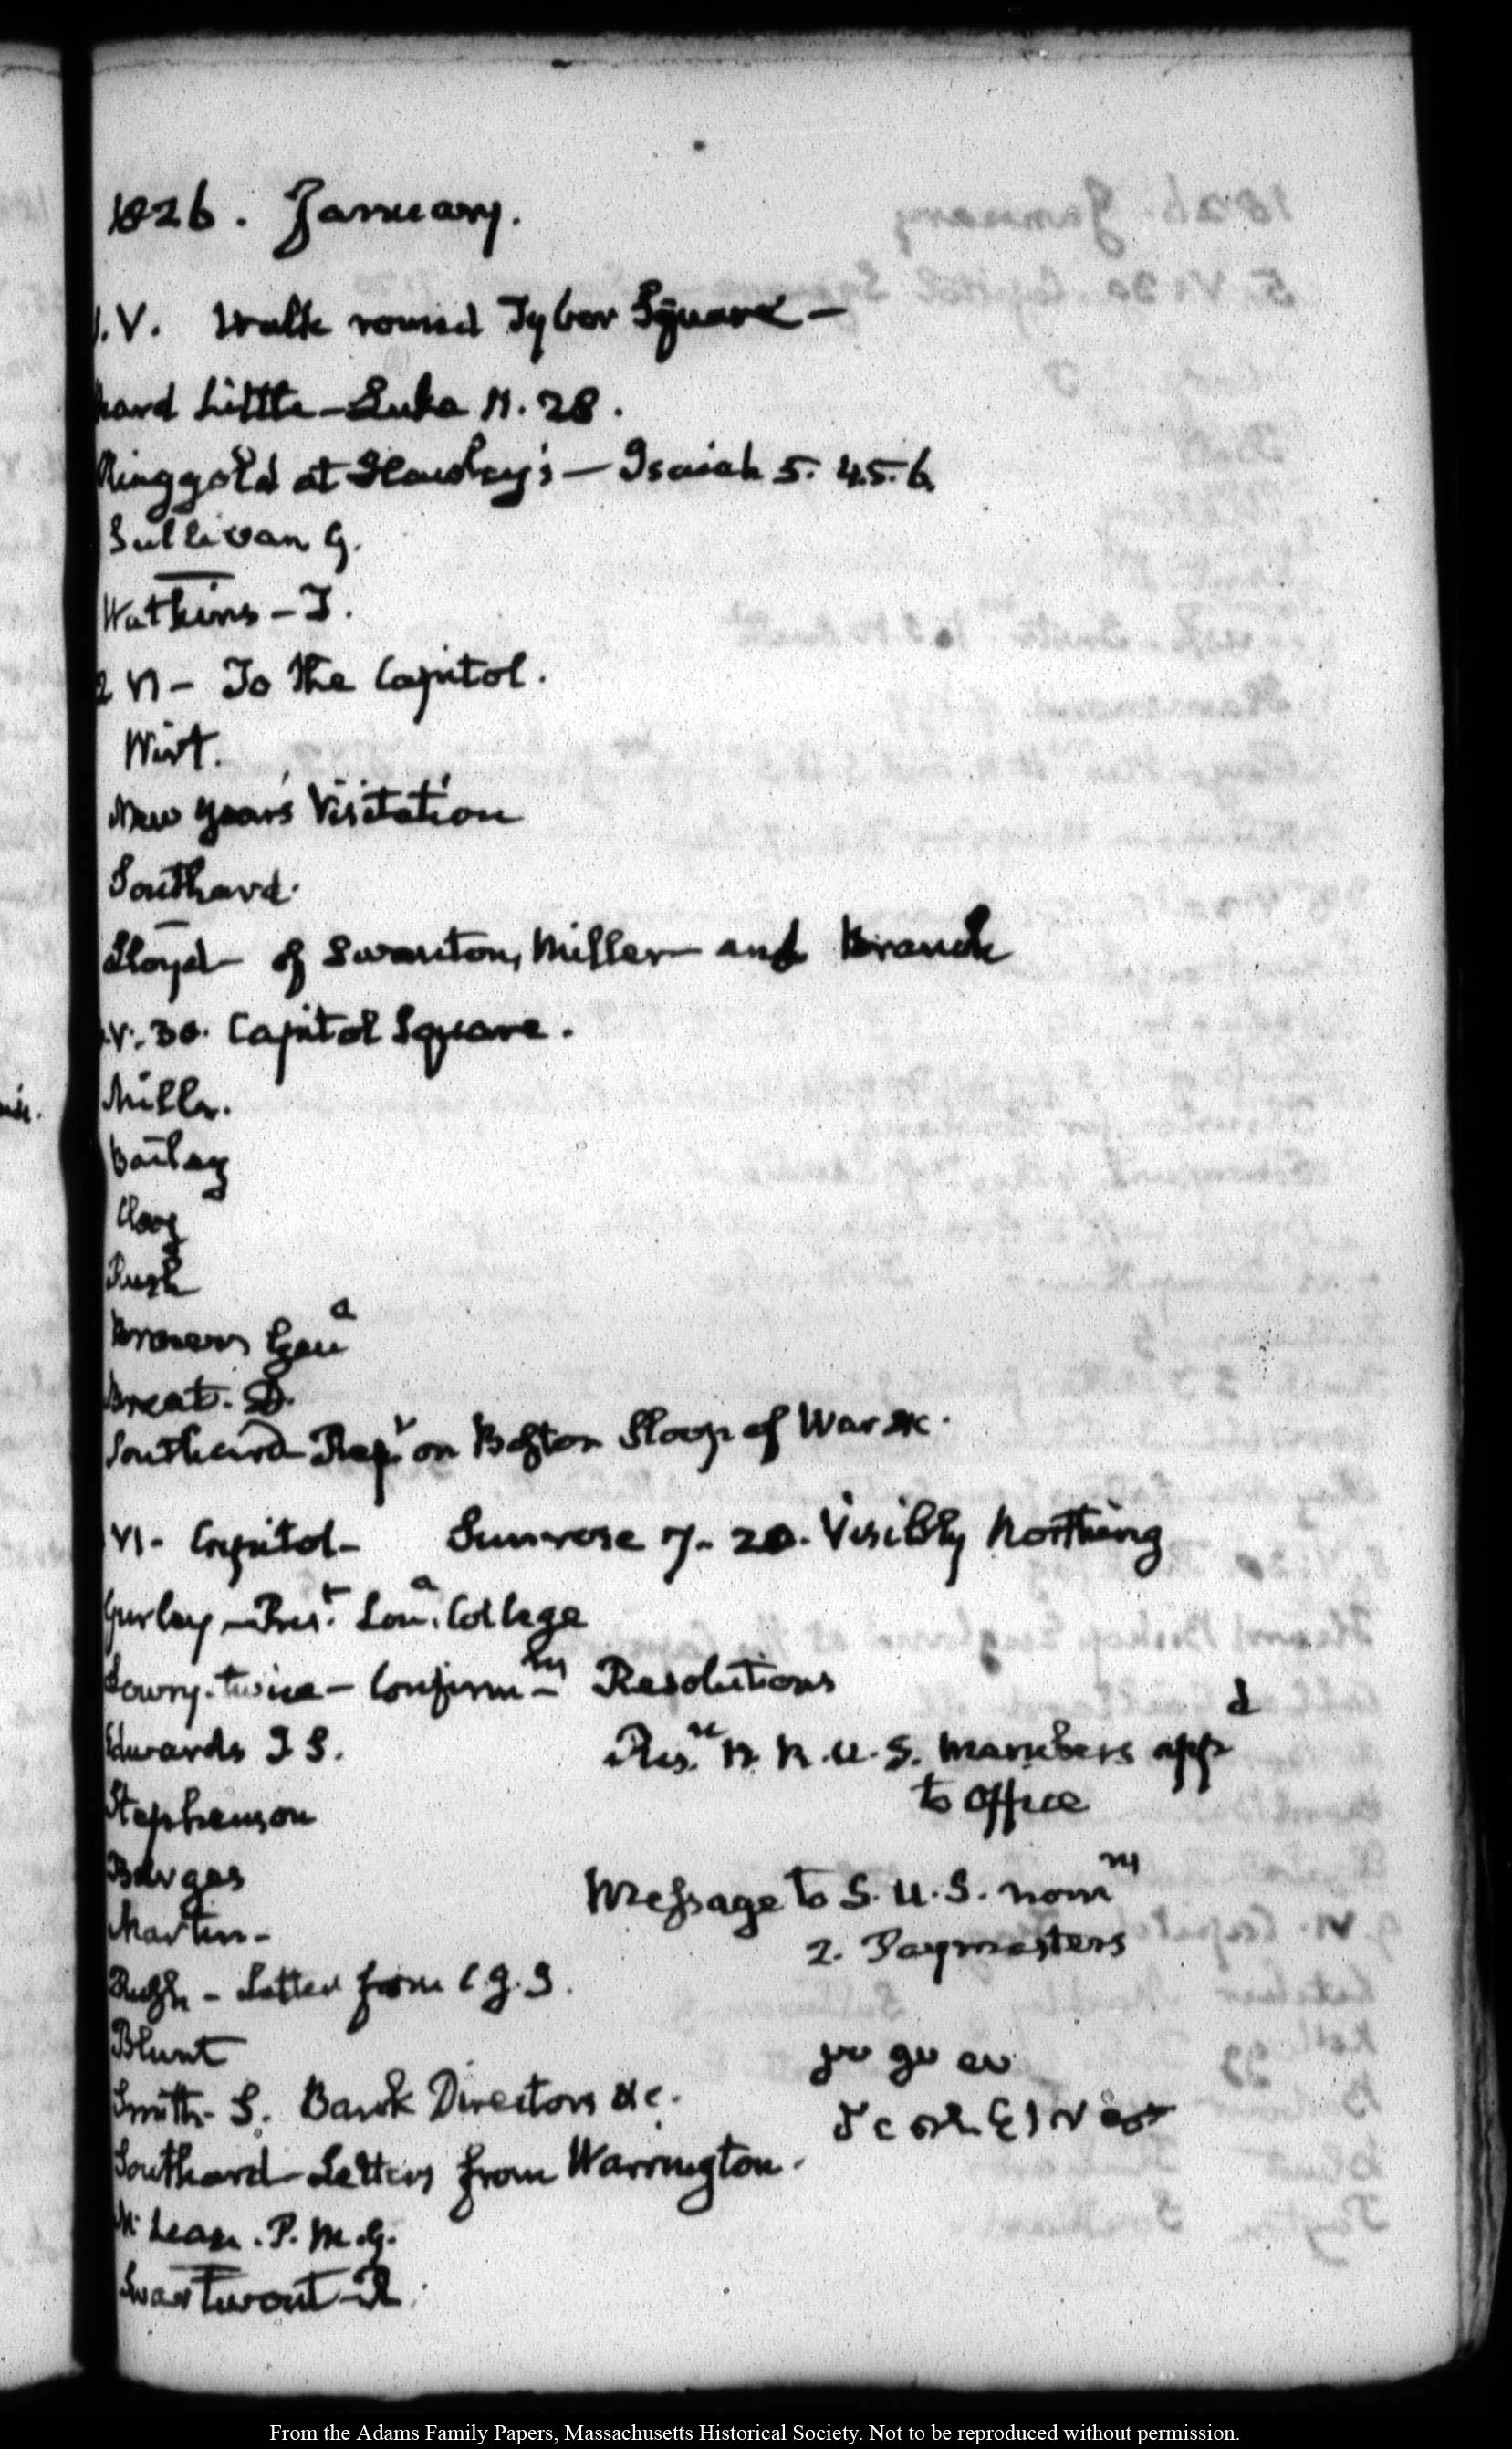 1826. January.
V. Walk round Tyber Square —
heard Little — Luke 11. 28.
Ringgold at Hawley's — Isaiah 5. 4.5.6.
Sullivan G.
Watkins — T.
2 VI — To the Capitol.
Wirt.
New Years Visitation
Southard.
Lloyd — of Swanton, Miller and Branch
V. 30. Capitol Square.
Mills.
Bailey
Clay
Rush
Brown Genl
Brent. D.
Southard Rept on Boston Sloop of War &c.
VI. Capitol — Sunrose 7. 20. Visibly Northing
Gurley — Prest. Loua. College
Lowry. twice — Confirmn Resolutions
Edwards I S.
H. R. U. S. Members appd
to Office
Stephenson
Burges
Message to S. U. S. nomn
2. Paymasters
Martin —
Rush — Letter from C. J. I.
Blunt
Smith. S. Bank Directors &c.
Southard — Letters from Warrington.
McLean. P. M. G.
Swartwout — R.
From the Adams Family Papers, Massachusetts Historical Society. Not to be reproduced without permission.